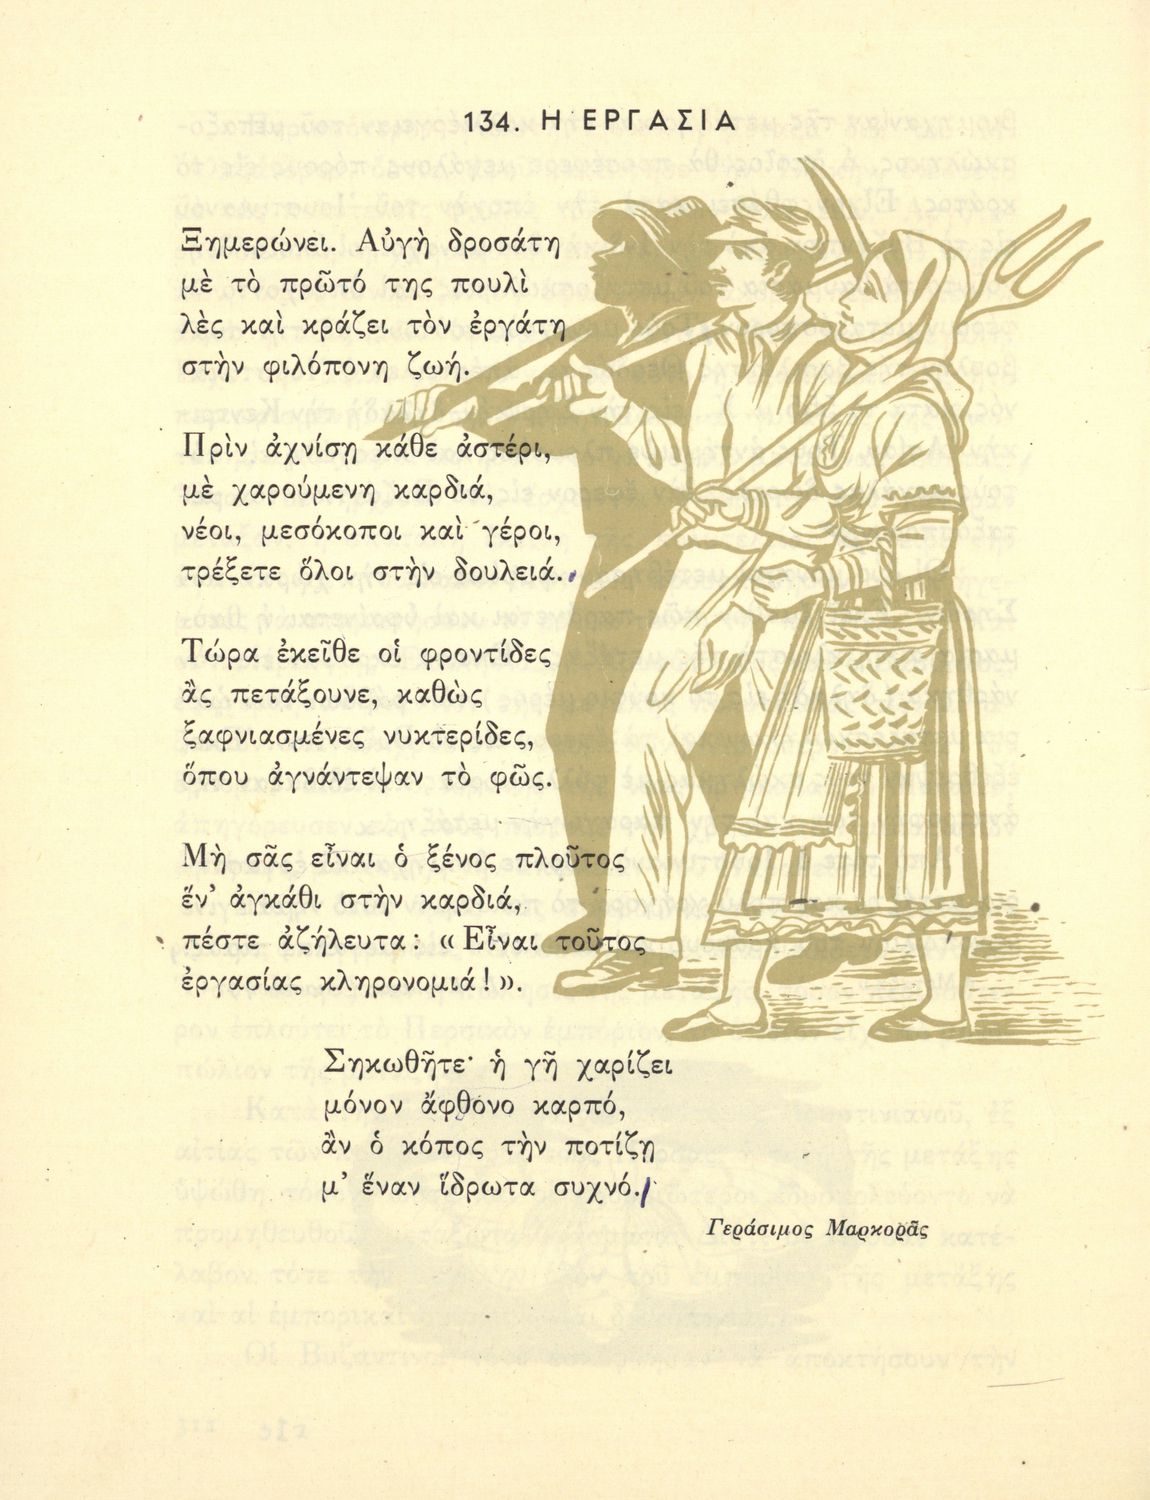 134. Η ΕΡΓΑΣΙΑ
Ξημερώνει. Αὐγὴ δροσάτη
μὲ τὸ πρῶτό της πουλὶ
λὲς καὶ κράζει τὸν ἐργάτη
στὴν φιλόπονη ζωή.
Πρὶν ἀχνίσῃ κάθε ἀστέρι,
μὲ χαρούμενη καρδιά,
νέοι, μεσόκοποι καὶ γέροι,
τρέξετε ὅλοι στὴν δουλειά.
Τώρα ἐκεῖθε οἱ φροντίδες
ἂς πετάξουνε, καθὼς
ξαφνιασμένες νυκτερίδες,
ὅπου ἀγνάντεψαν τὸ φῶς.
Μὴ σᾶς εἶναι ὁ ξένος πλοῦτος
ἕν' ἀγκάθι στὴν καρδιά,
πέστε ἀζήλευτα: «Εἶναι τοῦτος
ἐργασίας κληρονομιά!».
Σηκωθῆτε· ἡ γῆ χαρίζει
μόνον ἄφθονο καρπό,
ἂν ὁ κόπος τὴν ποτίζῃ
μ' ἕναν ἵδρωτα συχνό.
Γεράσιμος Μαρκορᾶς